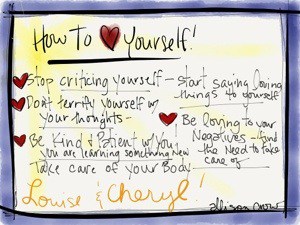 How To ❤ Yourself!
Stop criticizing yourself - start saying loving
things to yourself
Don't terrify yourself w/
your thoughts -
Be loving to your
Negatives - find
the need to take
care of
Be Kind & Patient w/ you
you are learning something new
Take care of your Body
Louise & Cheryl!
allison